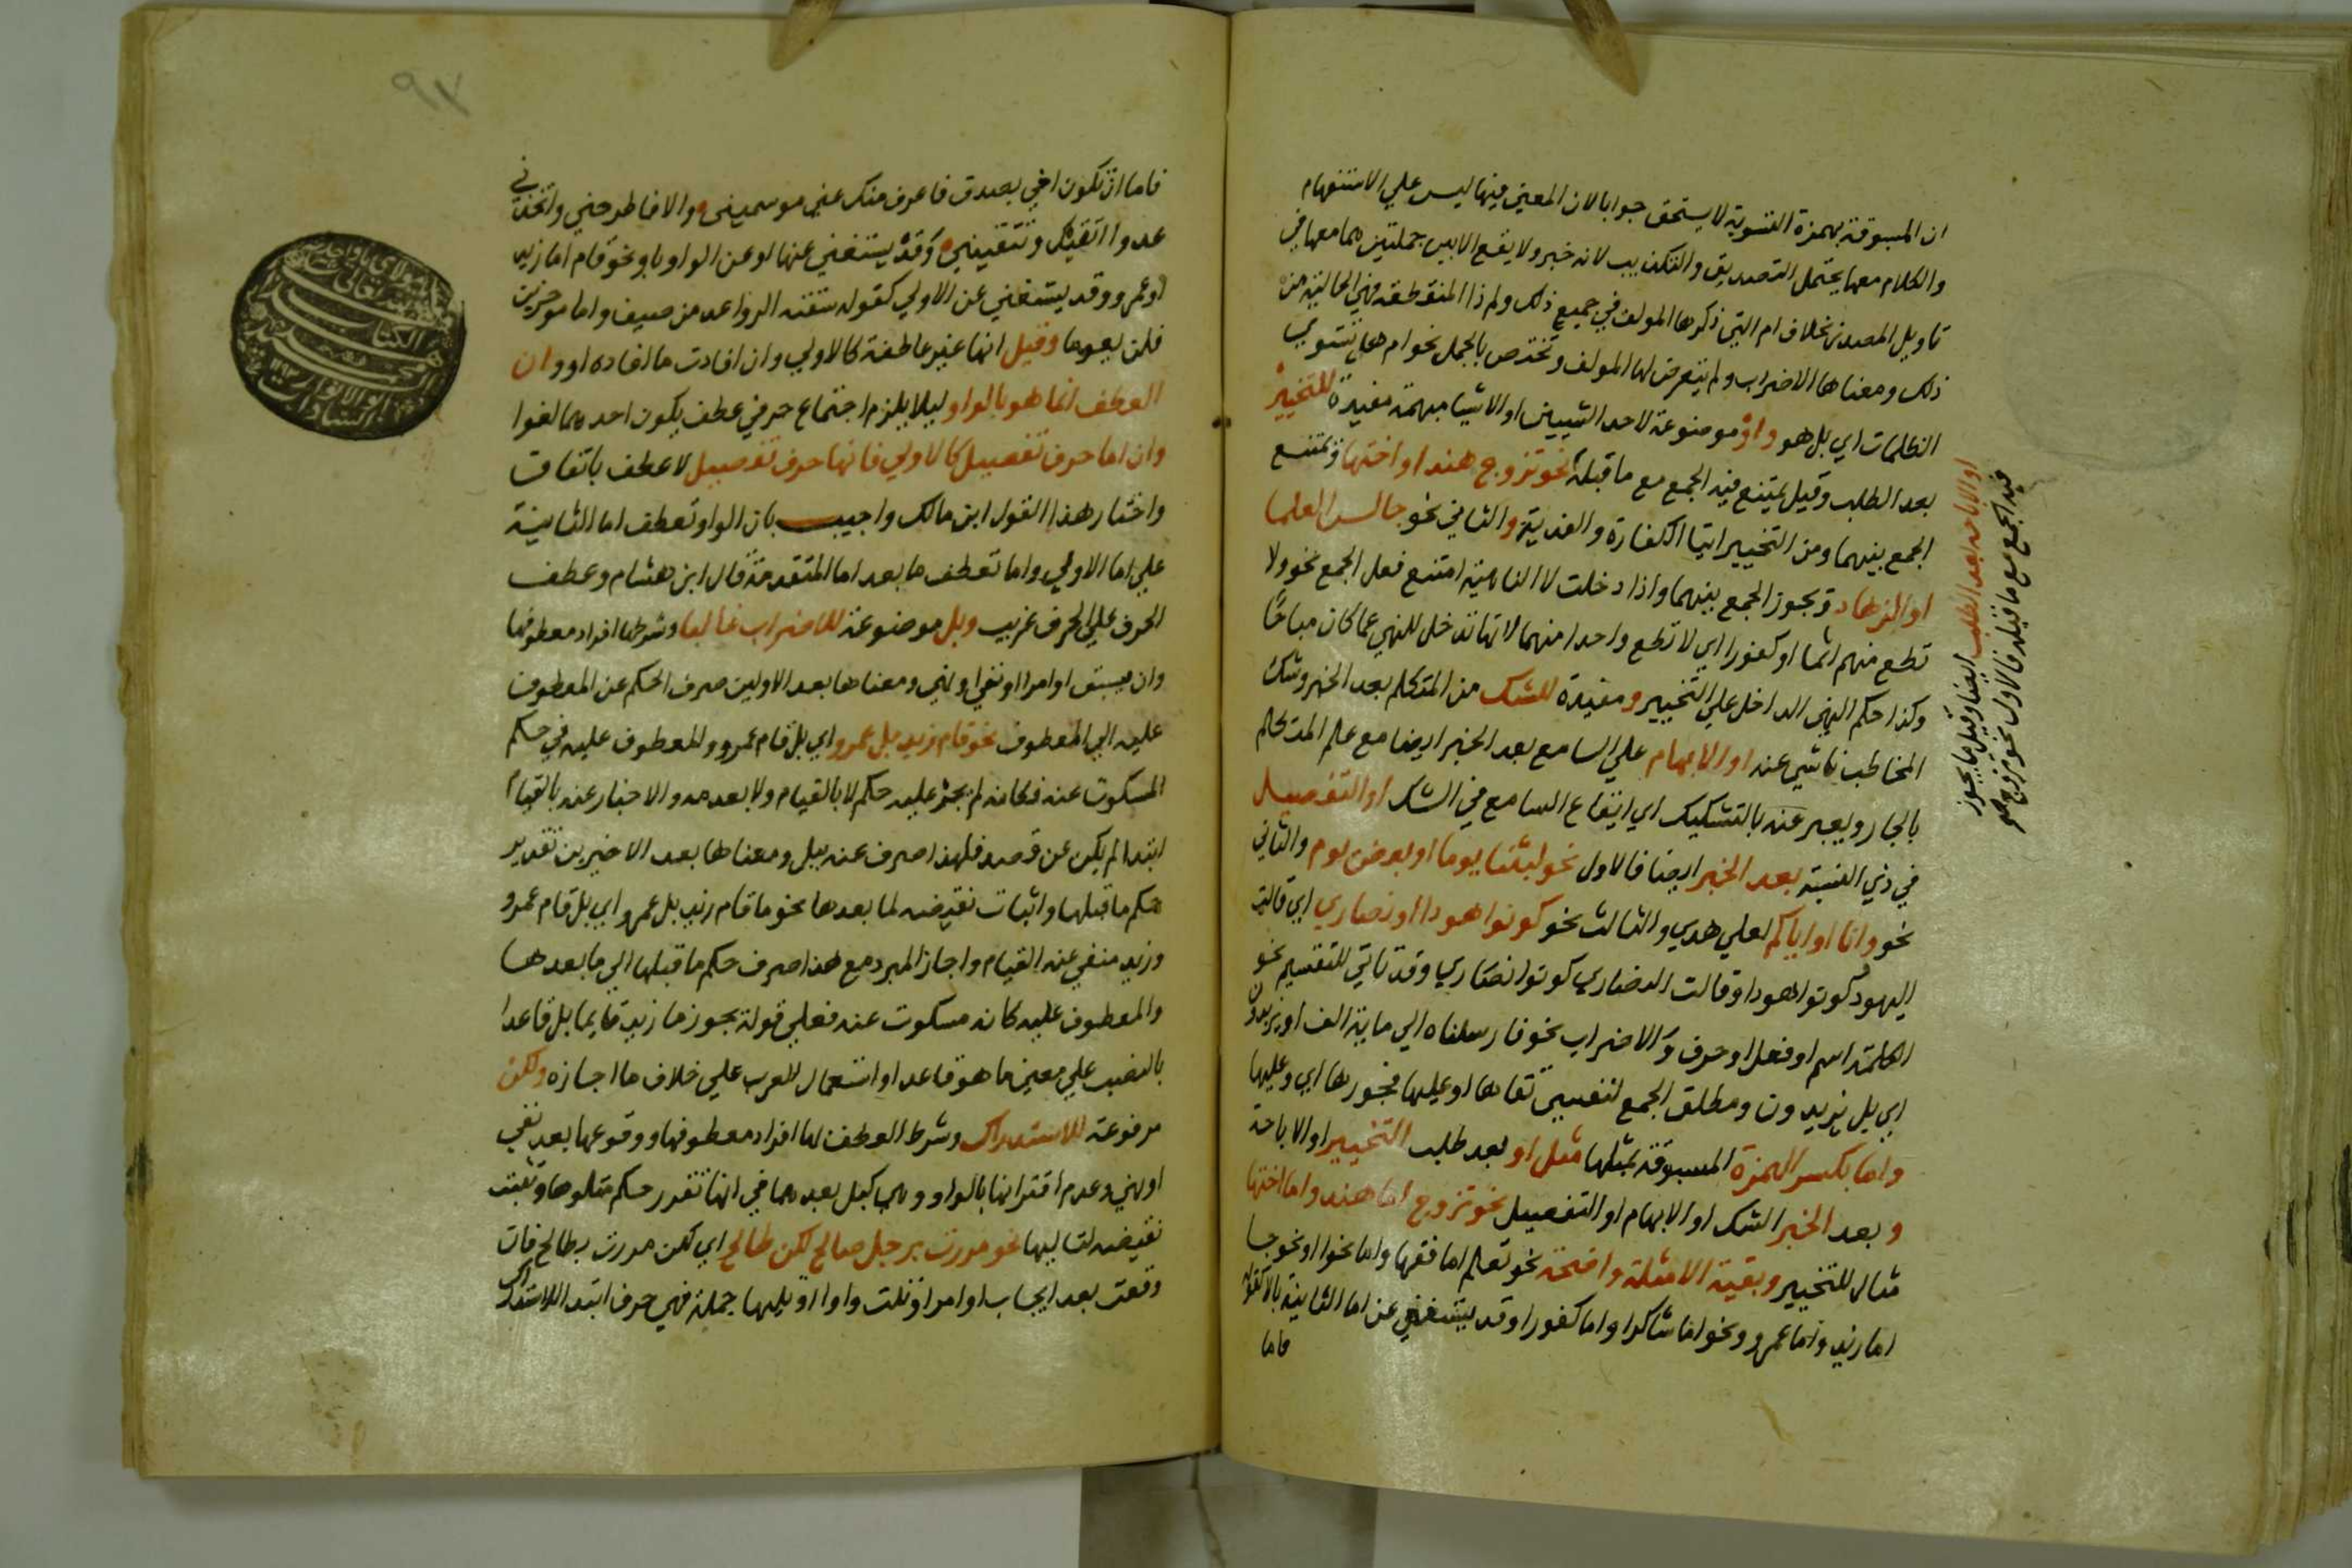 ان المسبوقة بهمزة التسوية لا يستحق جوابا لان المعني فيها ليس علي الاستفهام
والكلام معها يحتمل التصديق والتكذيب لانه خبر ولا يقع الا بين جملتين هما معها في
تاويل المصدر بخلاف ام التي ذكرها المولف في جميع ذلك ولم ذا المنقطعة فهي الخالية من
ذلك ومعناها الاضراب ولم يتعرض لها المولف وتختص بالجمل نحو ام هل تستوي
الظلمات اي بل هو واو موضوعة لاحد الشيين او الاشيا مبهمة مفيدة للتخيير
بعد الطلب وقيل يمتنع فيه الجمع مع ما قبله نحو تزوج هندا او اختها ويمتنع
الجمع بينهما ومن التخيير ايتا الكفارة والفدية والثاني نحو جالس العلما
او الزهاد ويجوز الجمع بينهما واذا دخلت لا الناهية امتنع فعل الجمع نحو ولا
تطع منهم اثما او كفورا اي لا تطع واحدا منهما لانها تدخل للنهي عما كان مباحا
وكذا حكم النهي الداخل علي التخيير ومفيدة للشك من المتكلم بعد الخبر وشك
المخاطب ناشي عنه او الابهام علي السامع بعد الخبر ايضا مع علم المتكلم
بالحار ويعبر عنه بالتشكيك اي ايقاع السامع في الشك او التفصيل
في ذي النسبة بعد الخبر ايضا فالاول نحو لبثنا يوما او بعض يوم والثاني
نحو وانا او اياكم لعلي هدي والثالث نحو كونوا هودا او نصاري اي قالت
اليهود كونوا هودا وقالت النصاري كونوا نصاري وقد تاتي للتقسيم نحو
الكلمة اسم او فعل او حرف والاضراب نحو فارسلناه الي ماية الف او يزيدون
اي بل يزيدون ومطلق الجمع لنفسي تقاها او عليها فجورها اي وعليها
واما بكسر الهمزة المسبوقة بمثلها مثل او بعد طلب التخيير او الاباحة
وبعد الخبر الشك او الابهام او التفصيل نحو تزوج اما هند واما اختها
مثال للتخيير وبقية الامثلة واضحة نحو تعلم اما فقها واما نحوا ونحو جا
اما زيد واما عمرو ونحو اما شاكرا واما كفورا وقد يستغني عن اما الثانية بالا كقوله
فاما
او الاباحة بعد الطلب ايضا وقيل ما يجوز
فيه الجمع مع ما قبله فالاول نحو تزوج
٩٧
فاما ان تكون اخي بصدق فاعرف منك غثي من سميني والا فاطرحني واتخذني
عدوا اتقيك وتتقيني وقد يستغني عنها او عن الواو باو نحو قام اما زيد
او عمرو وقد يستغني عن الاولي كقوله سقته الرواعد من صيف واما من خريف
فلن يعدما وقيل انها غير عاطفة كالاولي وان افادت ما افاده او وان
العطف انما هو بالواو ليلا يلزم اجتماع حرفي عطف يكون احدهما لغوا
وان اما حرف تفصيل كالاولي فانها حرف تفصيل لا عطف باتفاق
واختار هذا القول ابن مالك واجيب بان الواو تعطف اما الثانية
علي اما الاولي واما تعطف ما بعد اما المتقدمة قال ابن هشام وعطف
الحرف علي الحرف غريب وبل موضوعة للاضراب غالبا وشرطها افراد معطوفها
وان يسبق او امرا او نفي او نهي ومعناها بعد الاولين صرف الحكم عن المعطوف
عليه الي المعطوف نحو قام زيد بل عمرو اي بل قام عمرو والمعطوف عليه في حكم
المسكوت عنه فكانه لم يجر عليه حكم لا بالقيام ولا بعدمه والاخبار عنه بالقيام
ابتدا لم يكن عن قصد فلهذا صرف عنه ببل ومعناها بعد الاخيرين تقدير
حكم ما قبلها واثبات نقيضه لما بعدها نحو ما قام زيد بل عمرو اي بل قام عمرو
وزيد منفي عنه القيام واجاز المبرد مع هذا صرف حكم ما قبلها الي ما بعدها
والمعطوف عليه كانه مسكوت عنه فعلي قوله يجوز ما زيد قايما بل قاعدا
بالنصب علي معني ما هو قاعدا واستعمال العرب علي خلاف ما اجازه ولكن
موضوعة للاستدراك وشرط العطف لها افراد معطوفها ووقوعها بعد نفي
او نهي وعدم اقترانها بالواو وهي كبل بعدهما في انها تقرر حكم متلوها وتثبت
نقيضه لتاليها نحو مررت برجل صالح لكن طالح اي لكن مررت بطالح فان
وقعت بعد ايجاب او امر او تلت واوا او تليها جملة فهي حرف ابتدا للاستدراك